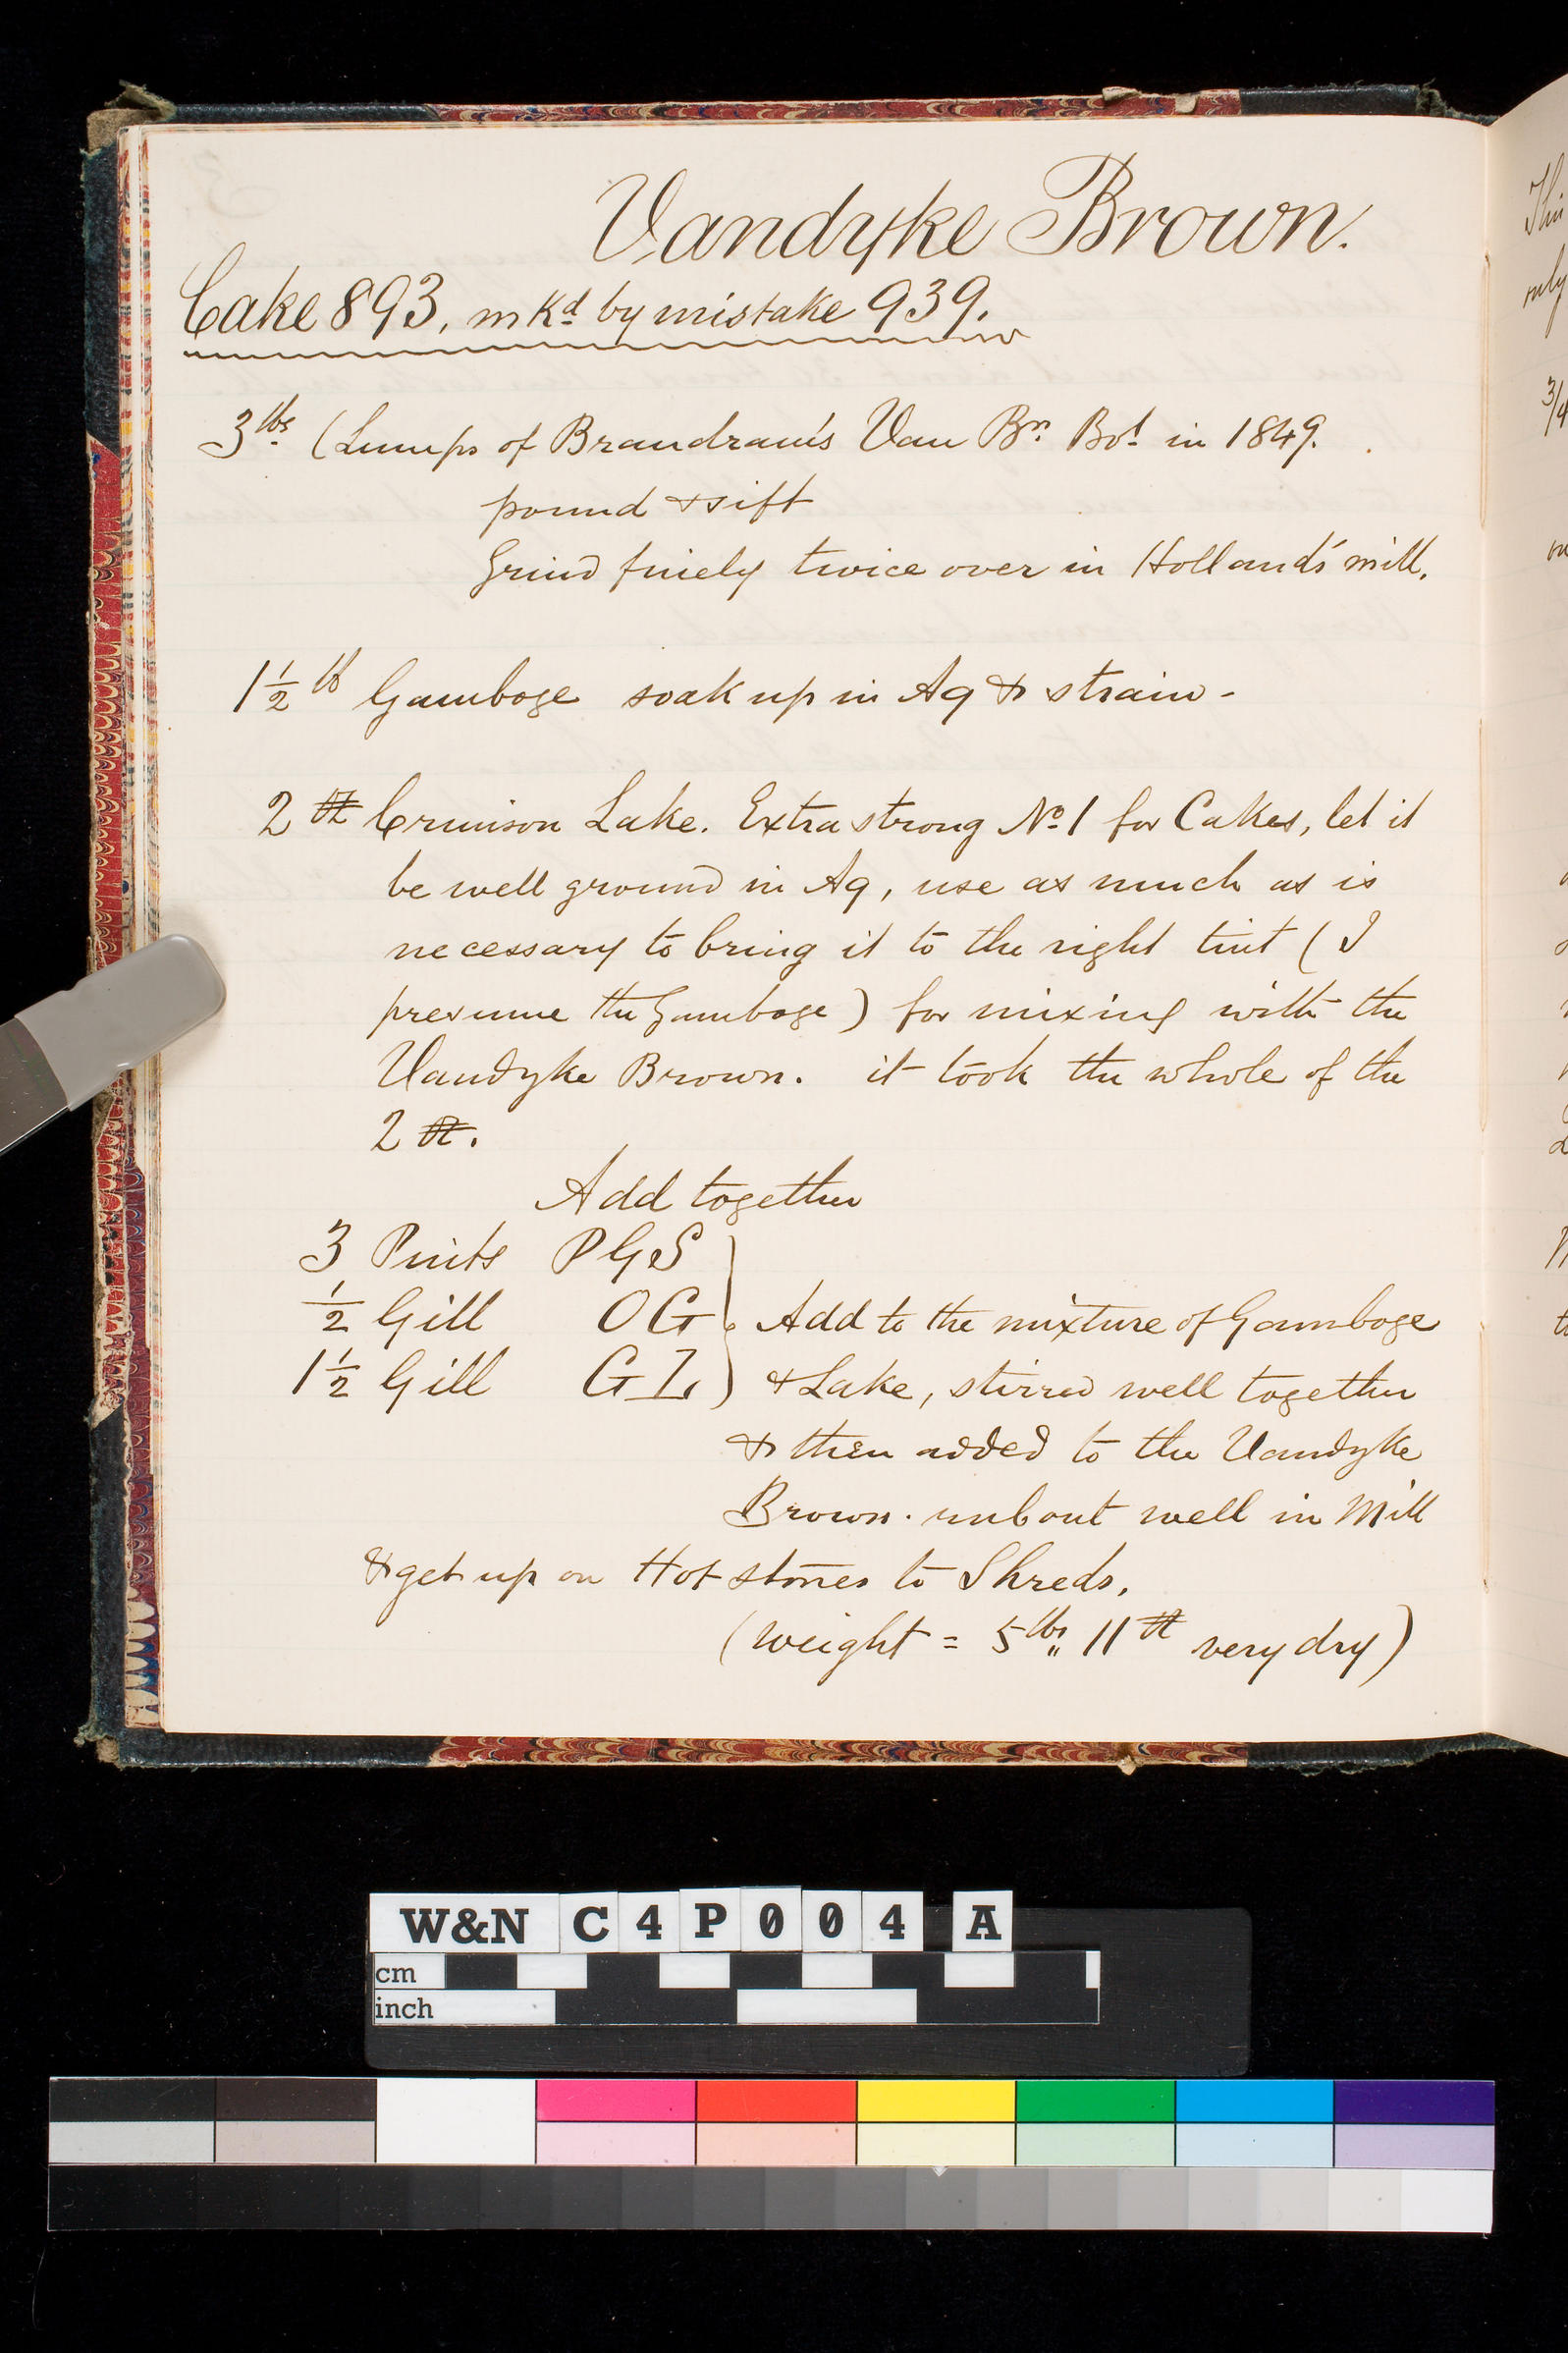 Vandyke Brown.
Cake 893, mkd by mistake 939.
3 lbs (Lumps of Brandram's Van Bn. Bot. in 1849.
pound & sift
Grind finely twice over in Holland's mill.
1½ lb Gamboge soak up in Aq & strain -
2 ℔ Crimson Lake. Extra strong No. 1 for Cakes, let it
be well ground in Aq, use as much as is
necessary to bring it to the right tint (I
presume the Gamboge) for mixing with the
Vandyke Brown. it took the whole of the
2 ℔.
Add together
3 Pints PGS
½ Gill OG } Add to the mixture of Gamboge
1½ Gill GL & Lake, stirred well together
& then added to the Vandyke
Brown. rub out well in Mill
& get up on Hot stones to Shreds.
(weight = 5 lbs,, 11 ℔ very dry)
W&N C4P004 A
cm
inch